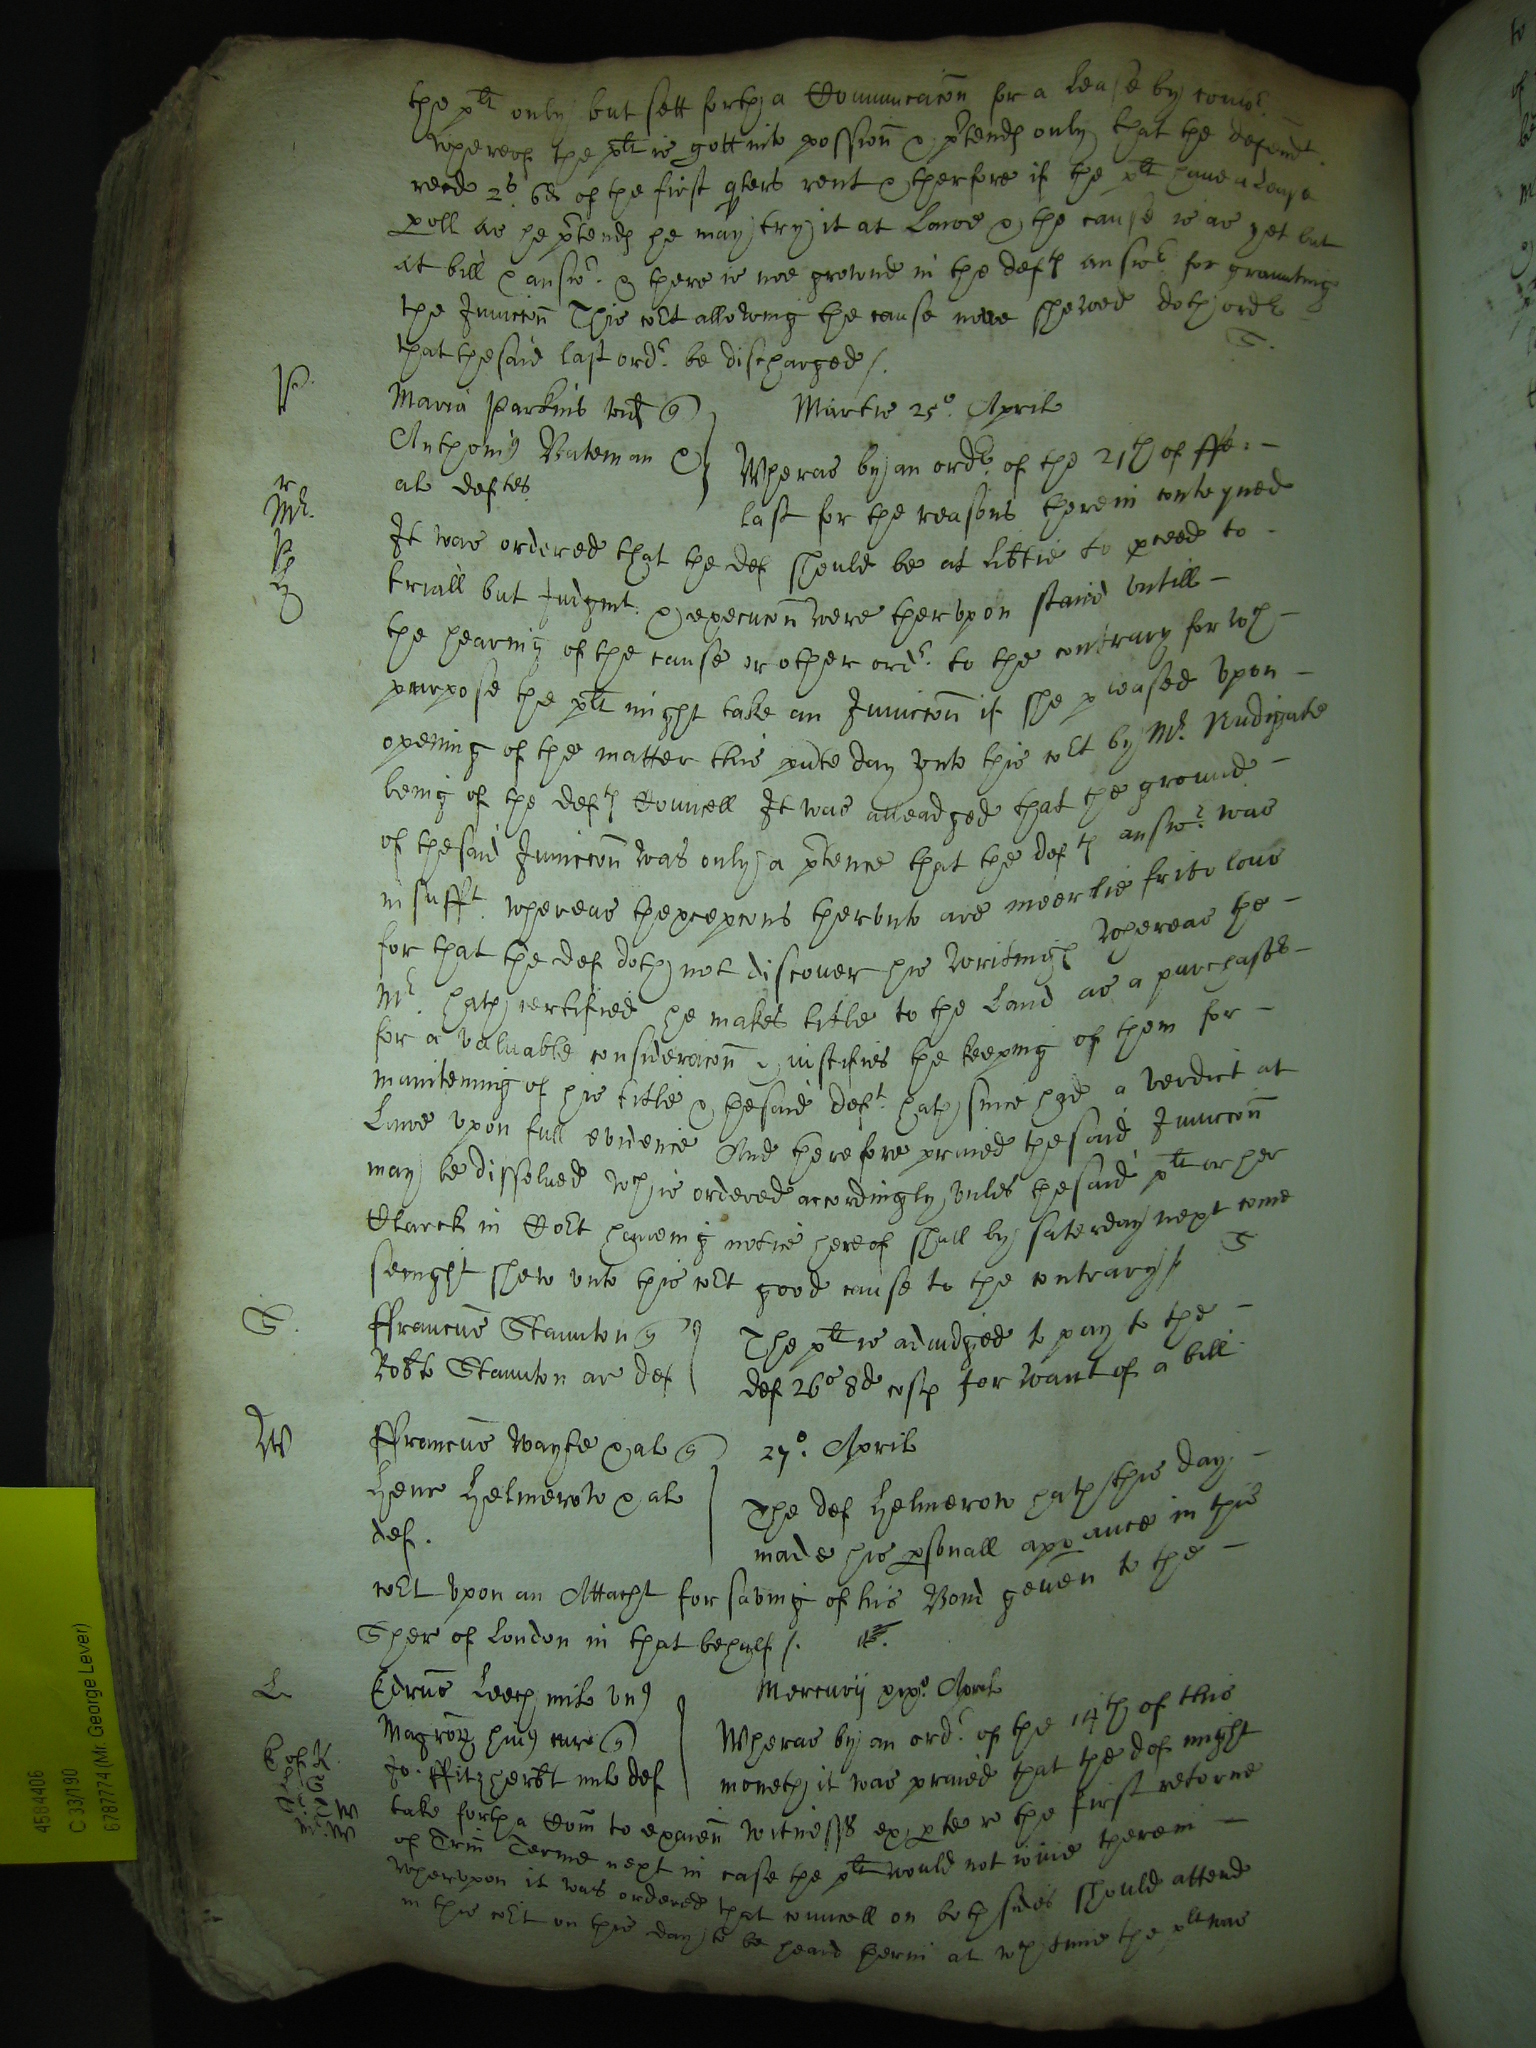 the plt only but sett forth a Communicacōn for a Lease by
whereof the plt is gott into possion & ptendℯ only that the defendt
recd 2s 6d of the first qters rent & therfore if the plt haue a Lease
poll as he ptendℯ he may try it at Lawe & the cause is as yet but
at bill & answr & there is noe grownd in the deftℯ answr for graunting
the Iniuccōn This cort allowing the cause nowe shewed doth ordr
that the said last ordr be discharged /.
P.
Maria Parkins vid
Martis 25o Aprilis
Anthonius Bateman &
al deftes
Wheras by an ordr of the 21th of ffe:
last for the reasons therein conteyned
Mr.
It was ordered that the def should be at libtie to pceed to
triall but Iudgmt & execucōn were thervpon staid vntill
the hearing of the cause or other ordr to the contrary for wch
purpose the plt might take an Iniuccōn if she pleased Vpon
opening of the matter this pnte day vnto this cort by Mr Rudigate
being of the deftℯ Councell It was alleadged that the ground
of the said Iniuccōn was only a ptence that the deftℯ answr was
insufft whereas thexcepcons thervnto are meerlie frivolous
for that the def doth not discouer his writingℯ whereas the
Mr hath certified he makes title to the Land as a purchaser
for a valuable consideracōn & iustifies the keeping of them for
maintening of his title & the said deft hath since had a verdict at
Lawe vpon full evidence And therefore praied the said Iniuccōn
may be dissolued wch is ordered accordingly vnles the said plt or her
Clarck in Cort haueing notice hereof shall by saterday next come
senight shew vnto this cort good cause to the contrary /.
S.
ffrancus Staunton
Robto Staunton ar def
The plt is adiudged to pay to the
def 26s 8d costℯ for want of a bill
W
ffrancus Wayte & al
27o Aprilis
Henr Helmerow & al
def.
The def Helmerow hath this day
made his psonall apparance in this
cort vpon an Attacht for saving of his Bond geuen to the
Sher of London in that behalf /.
L.
Edrus Leech mil vn9
Mercurij xixo Aprilis
Magror hui9 cure
Jo. ffitzherbt mil def
Wheras by an ordr of the 14th of this
moneth it was praied that the def might
take forth a Com to exaien witnesses ex pte r the first retorne
of Trin Terme next in case the plt would not ioine therein
Whervpon it was ordered that councell on both sides should attend
in this cort on this day to be heard herin at wch time the plt was
4584406
C 33/190
6787774 (Mr. George Lever)